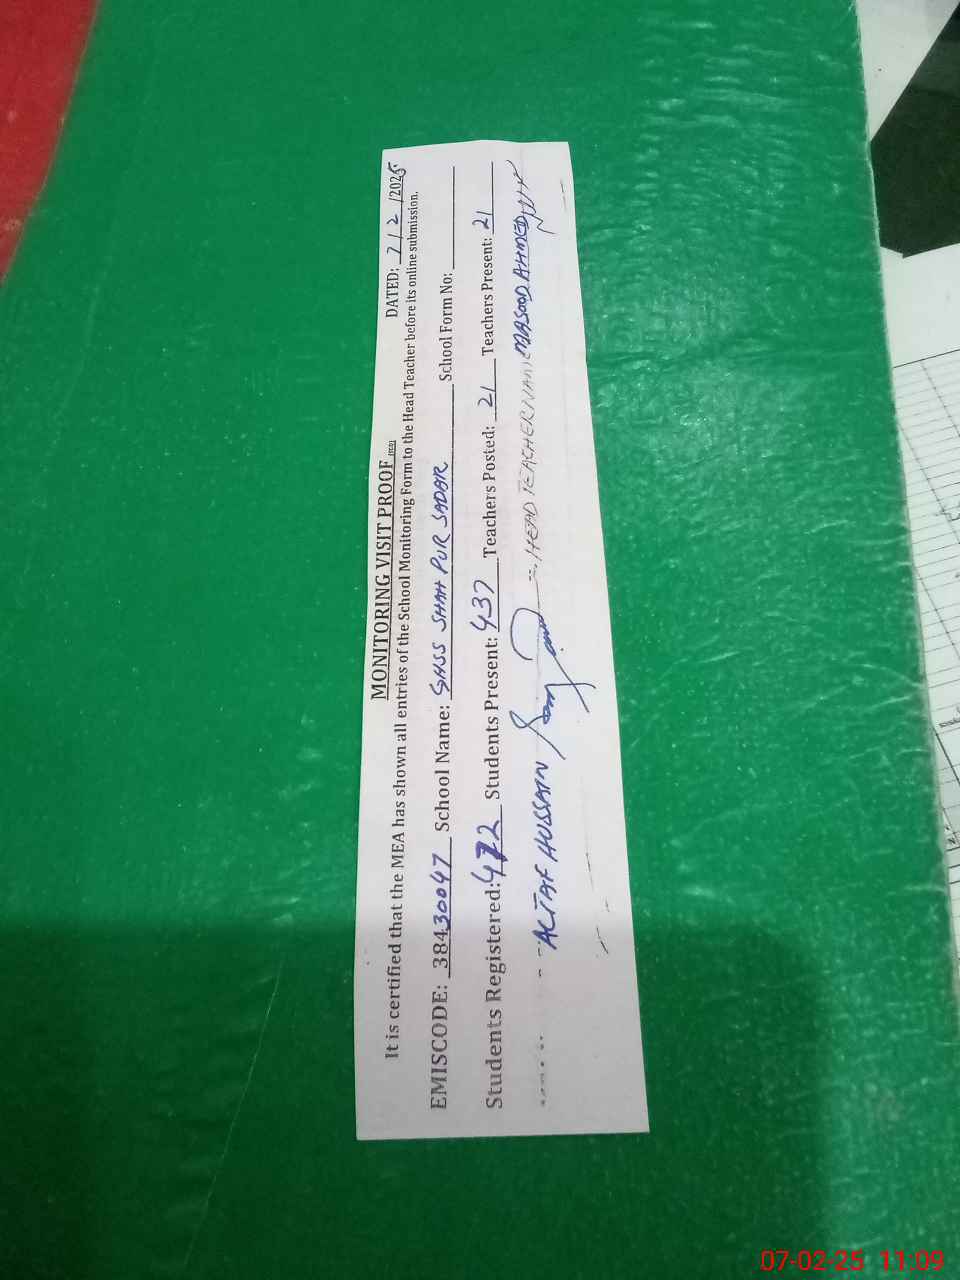 MONITORING VISIT PROOF
DATED: 7/2/2025
It is certified that the MEA has shown all entries of the School Monitoring Form to the Head Teacher before its online submission.
EMISCODE: 38430047 School Name: GHSS SHAH PUR SADAR School Form No:
Students Registered: 472 Students Present: 437 Teachers Posted: 21 Teachers Present: 21
ALTAF HUSSAIN HEAD TEACHER NAME MASOOD AHMED
07-02-25 11:09